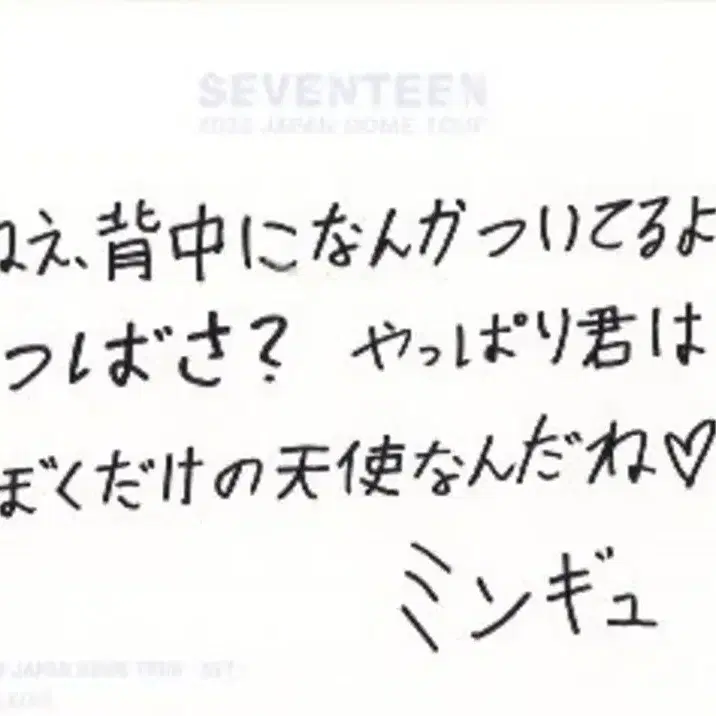 SEVENTEEN
JAPAN DOME TOUR
ねえ、背中になんかついてるよ
つばさ? やっぱり君は
ぼくだけの天使なんだね♡
ミンギュ
JAPAN DOME TOUR